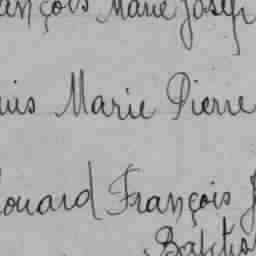 ançois Marie Josep
uis Marie Pierre
ouard François J
Baptis